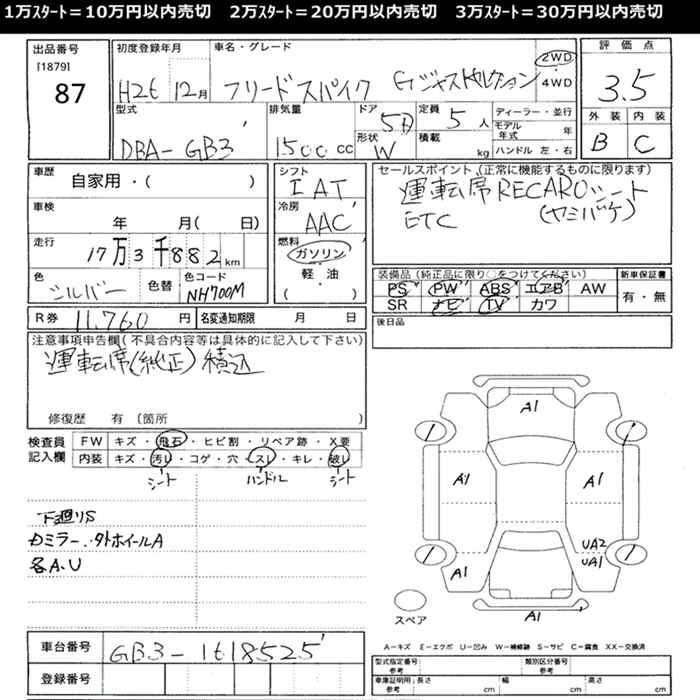 1万スタート＝10万円以内売切　2万スタート＝20万円以内売切　3万スタート＝30万円以内売切
出品番号 [1879] 87
初度登録年月 H26 12月
車名・グレード フリードスパイク Gジャストセレクション
2WD・4WD
評価点 3.5
外装 B 内装 C
型式 DBA-GB3
排気量 1500cc
ドア 5D
形状 W
定員 5人
積載 kg
ディーラー・並行
モデル年式 年
ハンドル 左・右
車歴 自家用・( )
車検 年 月( 日)
走行 17万3千882km
色 シルバー 色替 色コード NH700M
シフト IAT
冷房 AAC
燃料 ガソリン・軽・油 ( )
セールスポイント(正常に機能するものに限ります)
運転席RECAROシート
ETC (ヤミバケ)
装備品(純正品に限り○をつけてください)
PS PW ABS エアB AW
SR ナビ TV カワ
新車保証書 有・無
R券 11,760円 名変通知期限 月 日
後日品
注意事項申告欄(不具合内容等は具体的に記入して下さい)
運転席(純正)積込
修復歴 有 (箇所
検査員記入欄
FW キズ・飛石・ヒビ割・リペア跡・X要
内装 キズ・汚れ・コゲ・穴・スレ・キレ・破レ
シート ハンドル シート
下廻りS
カミラー、タトホイールA
各A.U
A1
A1 A1
UA2
A1 UA1
A1
スペア
A－キズ E－エクボ U－凹み W－補修跡 S－サビ C－腐食 XX－交換済
車台番号 GB3-1618525
登録番号
型式指定番号 参考
類別区分番号 参考
車庫証明用 参考 長さ cm 幅 cm 高さ cm